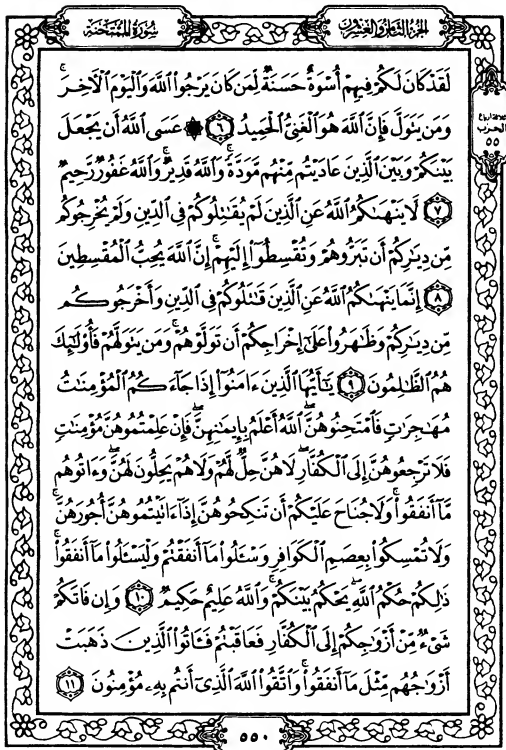 سُورَةُ المُمْتَحنَة
الجُزْءُ الثَّامِنُ وَالعِشْرُونَ
لَقَدْ كَانَ لَكُمْ فِيهِمْ أُسْوَةٌ حَسَنَةٌ لِّمَن كَانَ يَرْجُوا۟ ٱللَّهَ وَٱلْيَوْمَ ٱلْـَٔاخِرَ ۚ
وَمَن يَتَوَلَّ فَإِنَّ ٱللَّهَ هُوَ ٱلْغَنِىُّ ٱلْحَمِيدُ ٦ ۞ عَسَى ٱللَّهُ أَن يَجْعَلَ
بَيْنَكُمْ وَبَيْنَ ٱلَّذِينَ عَادَيْتُم مِّنْهُم مَّوَدَّةً ۚ وَٱللَّهُ قَدِيرٌ ۚ وَٱللَّهُ غَفُورٌ رَّحِيمٌ
٧ لَّا يَنْهَىٰكُمُ ٱللَّهُ عَنِ ٱلَّذِينَ لَمْ يُقَٰتِلُوكُمْ فِى ٱلدِّينِ وَلَمْ يُخْرِجُوكُم
مِّن دِيَٰرِكُمْ أَن تَبَرُّوهُمْ وَتُقْسِطُوٓا۟ إِلَيْهِمْ ۚ إِنَّ ٱللَّهَ يُحِبُّ ٱلْمُقْسِطِينَ
٨ إِنَّمَا يَنْهَىٰكُمُ ٱللَّهُ عَنِ ٱلَّذِينَ قَٰتَلُوكُمْ فِى ٱلدِّينِ وَأَخْرَجُوكُم
مِّن دِيَٰرِكُمْ وَظَٰهَرُوا۟ عَلَىٰٓ إِخْرَاجِكُمْ أَن تَوَلَّوْهُمْ ۚ وَمَن يَتَوَلَّهُمْ فَأُو۟لَٰٓئِكَ
هُمُ ٱلظَّٰلِمُونَ ٩ يَٰٓأَيُّهَا ٱلَّذِينَ ءَامَنُوٓا۟ إِذَا جَآءَكُمُ ٱلْمُؤْمِنَٰتُ
مُهَٰجِرَٰتٍ فَٱمْتَحِنُوهُنَّ ۖ ٱللَّهُ أَعْلَمُ بِإِيمَٰنِهِنَّ ۖ فَإِنْ عَلِمْتُمُوهُنَّ مُؤْمِنَٰتٍ
فَلَا تَرْجِعُوهُنَّ إِلَى ٱلْكُفَّارِ ۖ لَا هُنَّ حِلٌّ لَّهُمْ وَلَا هُمْ يَحِلُّونَ لَهُنَّ ۖ وَءَاتُوهُم
مَّآ أَنفَقُوا۟ ۚ وَلَا جُنَاحَ عَلَيْكُمْ أَن تَنكِحُوهُنَّ إِذَآ ءَاتَيْتُمُوهُنَّ أُجُورَهُنَّ ۚ
وَلَا تُمْسِكُوا۟ بِعِصَمِ ٱلْكَوَافِرِ وَسْـَٔلُوا۟ مَآ أَنفَقْتُمْ وَلْيَسْـَٔلُوا۟ مَآ أَنفَقُوا۟ ۚ
ذَٰلِكُمْ حُكْمُ ٱللَّهِ ۖ يَحْكُمُ بَيْنَكُمْ ۚ وَٱللَّهُ عَلِيمٌ حَكِيمٌ ١٠ وَإِن فَاتَكُمْ
شَىْءٌ مِّنْ أَزْوَٰجِكُمْ إِلَى ٱلْكُفَّارِ فَعَاقَبْتُمْ فَـَٔاتُوا۟ ٱلَّذِينَ ذَهَبَتْ
أَزْوَٰجُهُم مِّثْلَ مَآ أَنفَقُوا۟ ۚ وَٱتَّقُوا۟ ٱللَّهَ ٱلَّذِىٓ أَنتُم بِهِۦ مُؤْمِنُونَ ١١
ثلاثة أرباع
الحزب
٥٥
٥٥٠